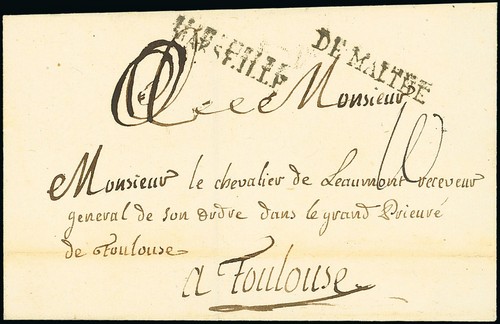 MARSEILLE
DE MALTHE
A Monsieur
10
Monsieur le chevalier de Leaumont receveur
general de son ordre dans le grand Prieuré
de Toulouse
a Toulouse